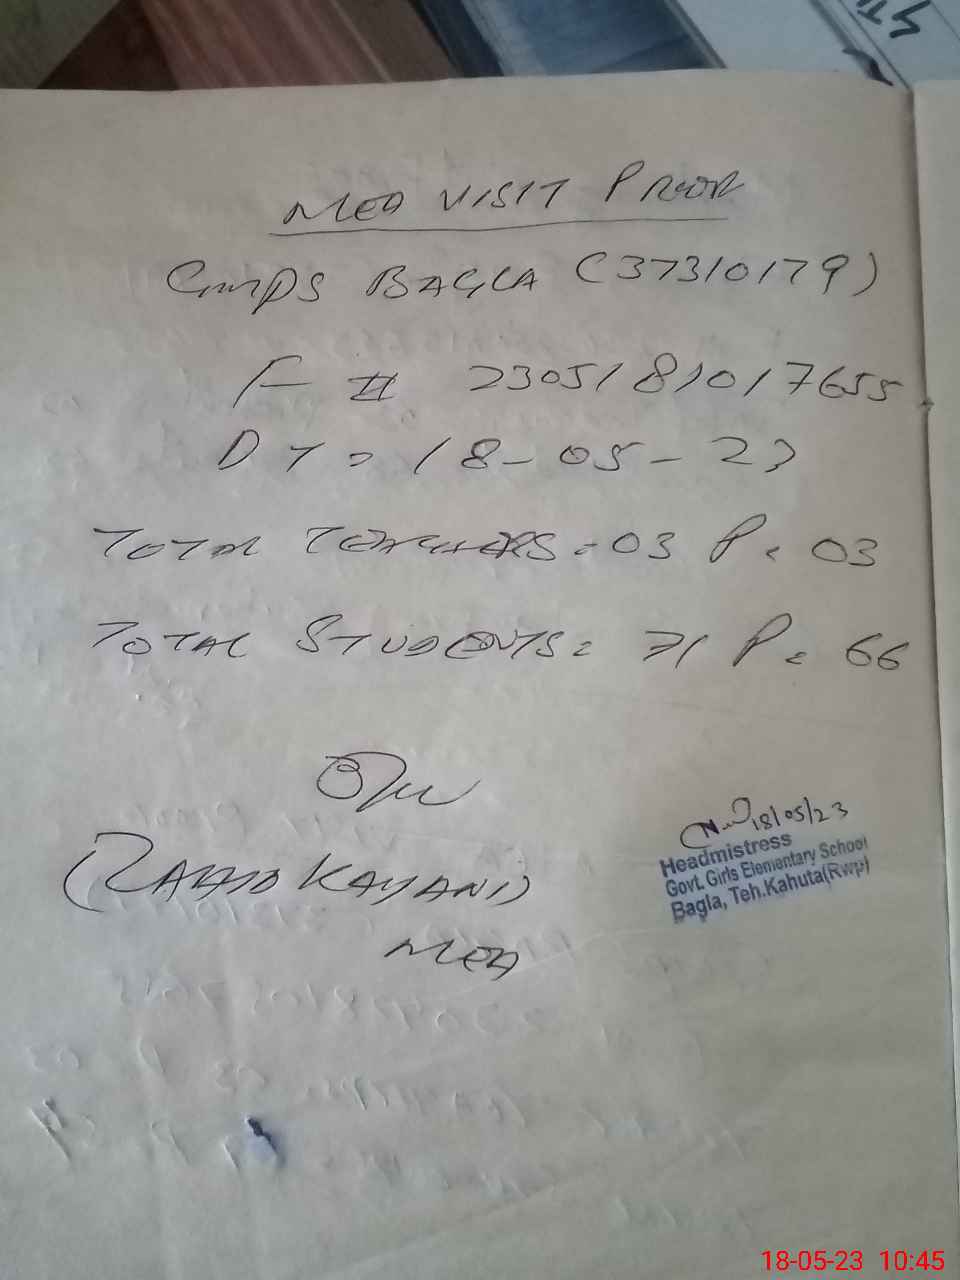 MEA VISIT PROOF
GMPS BAGLA (37310179)
F # 2305181017655
DT = 18-05-23
TOTAL TEACHERS = 03 P = 03
TOTAL STUDENTS = 71 P = 66
KAYANI)
MEA
18/05/23
Headmistress
Govt. Girls Elementary School
Bagla, Teh.Kahuta(Rwp)
18-05-23 10:45